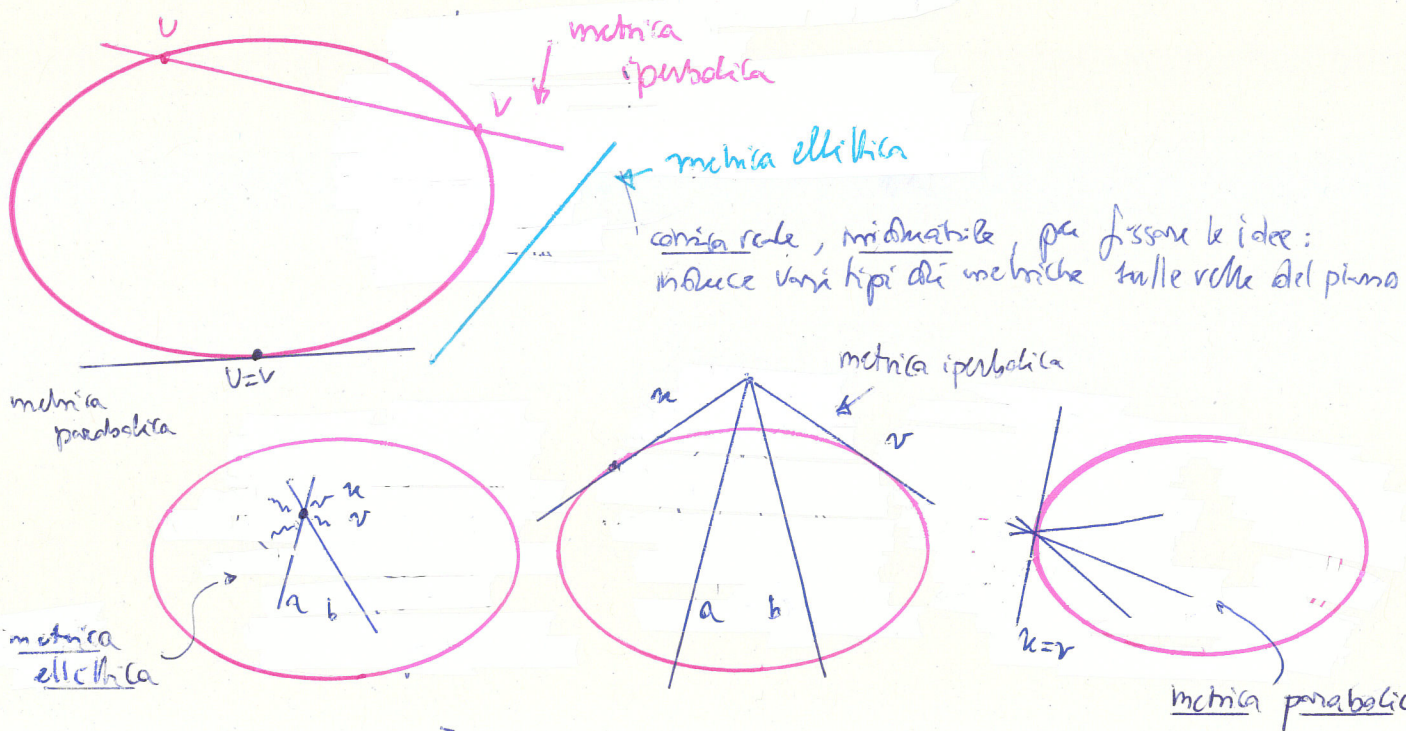 U
metrica
iperbolica
V
metrica ellittica
conica reale, , per fissare le idee:
induce vari tipi di metriche sulle rette del piano
U=V
metrica
parabolica
metrica iperbolica
u
v
a b
u v
u v
a b
metrica
ellittica
u=v
metrica parabolic